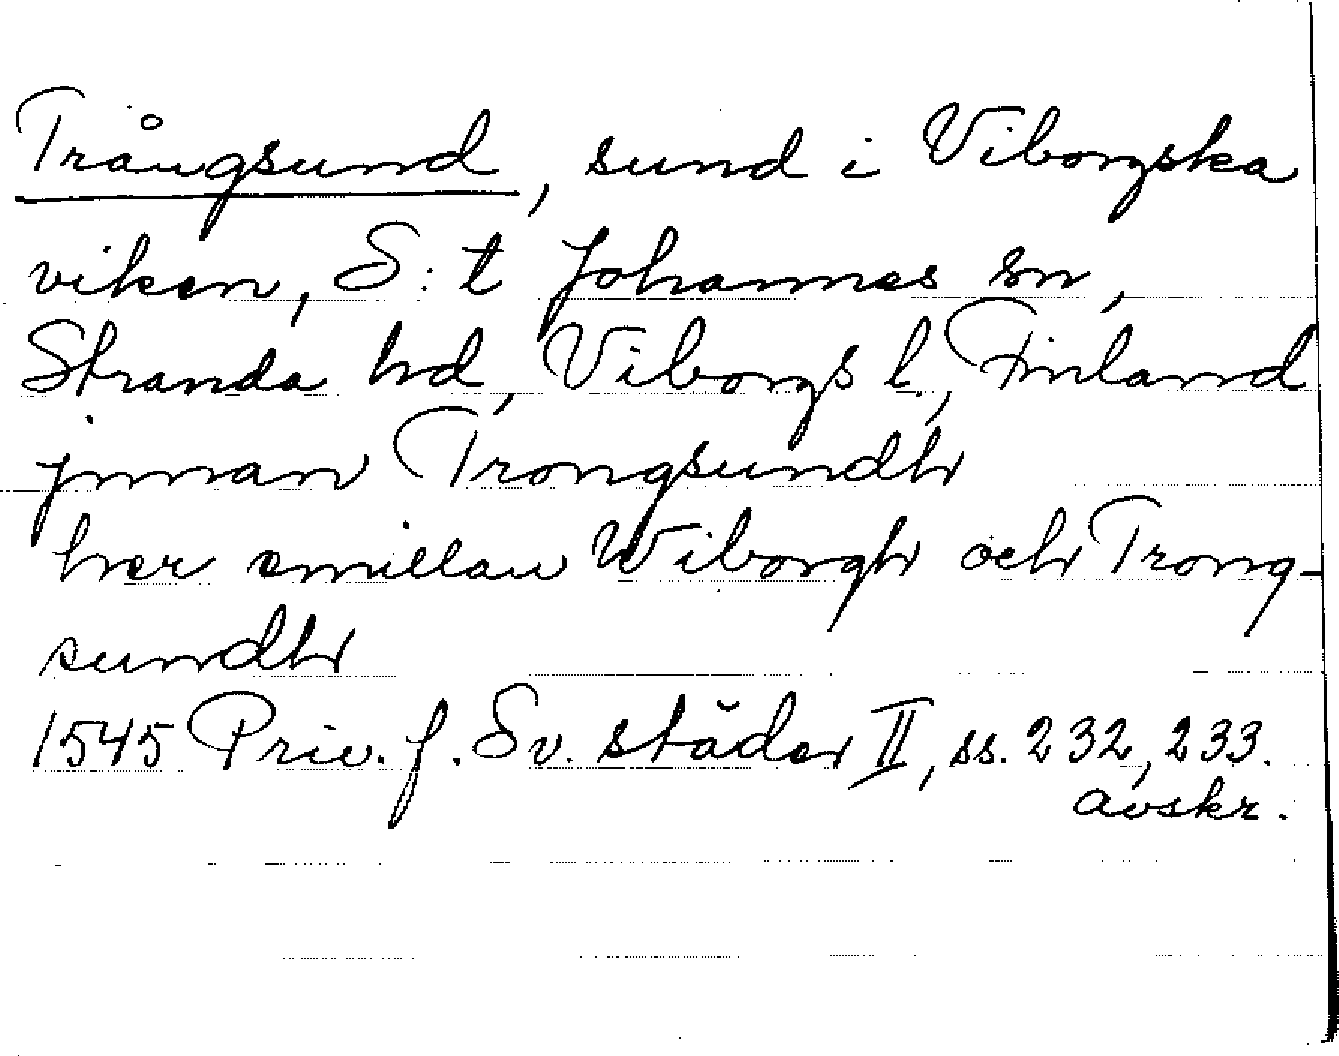 Trångsund, sund i Viborgska
viken, S:t Johannes sn,
Stranda hd, Viborgs l., Finland
jnnan Trongsundh
her emillan Wiborgh och Trong-
sundh
1545 Priv. f. Sv. städer II, ss. 232, 233.
avskr.